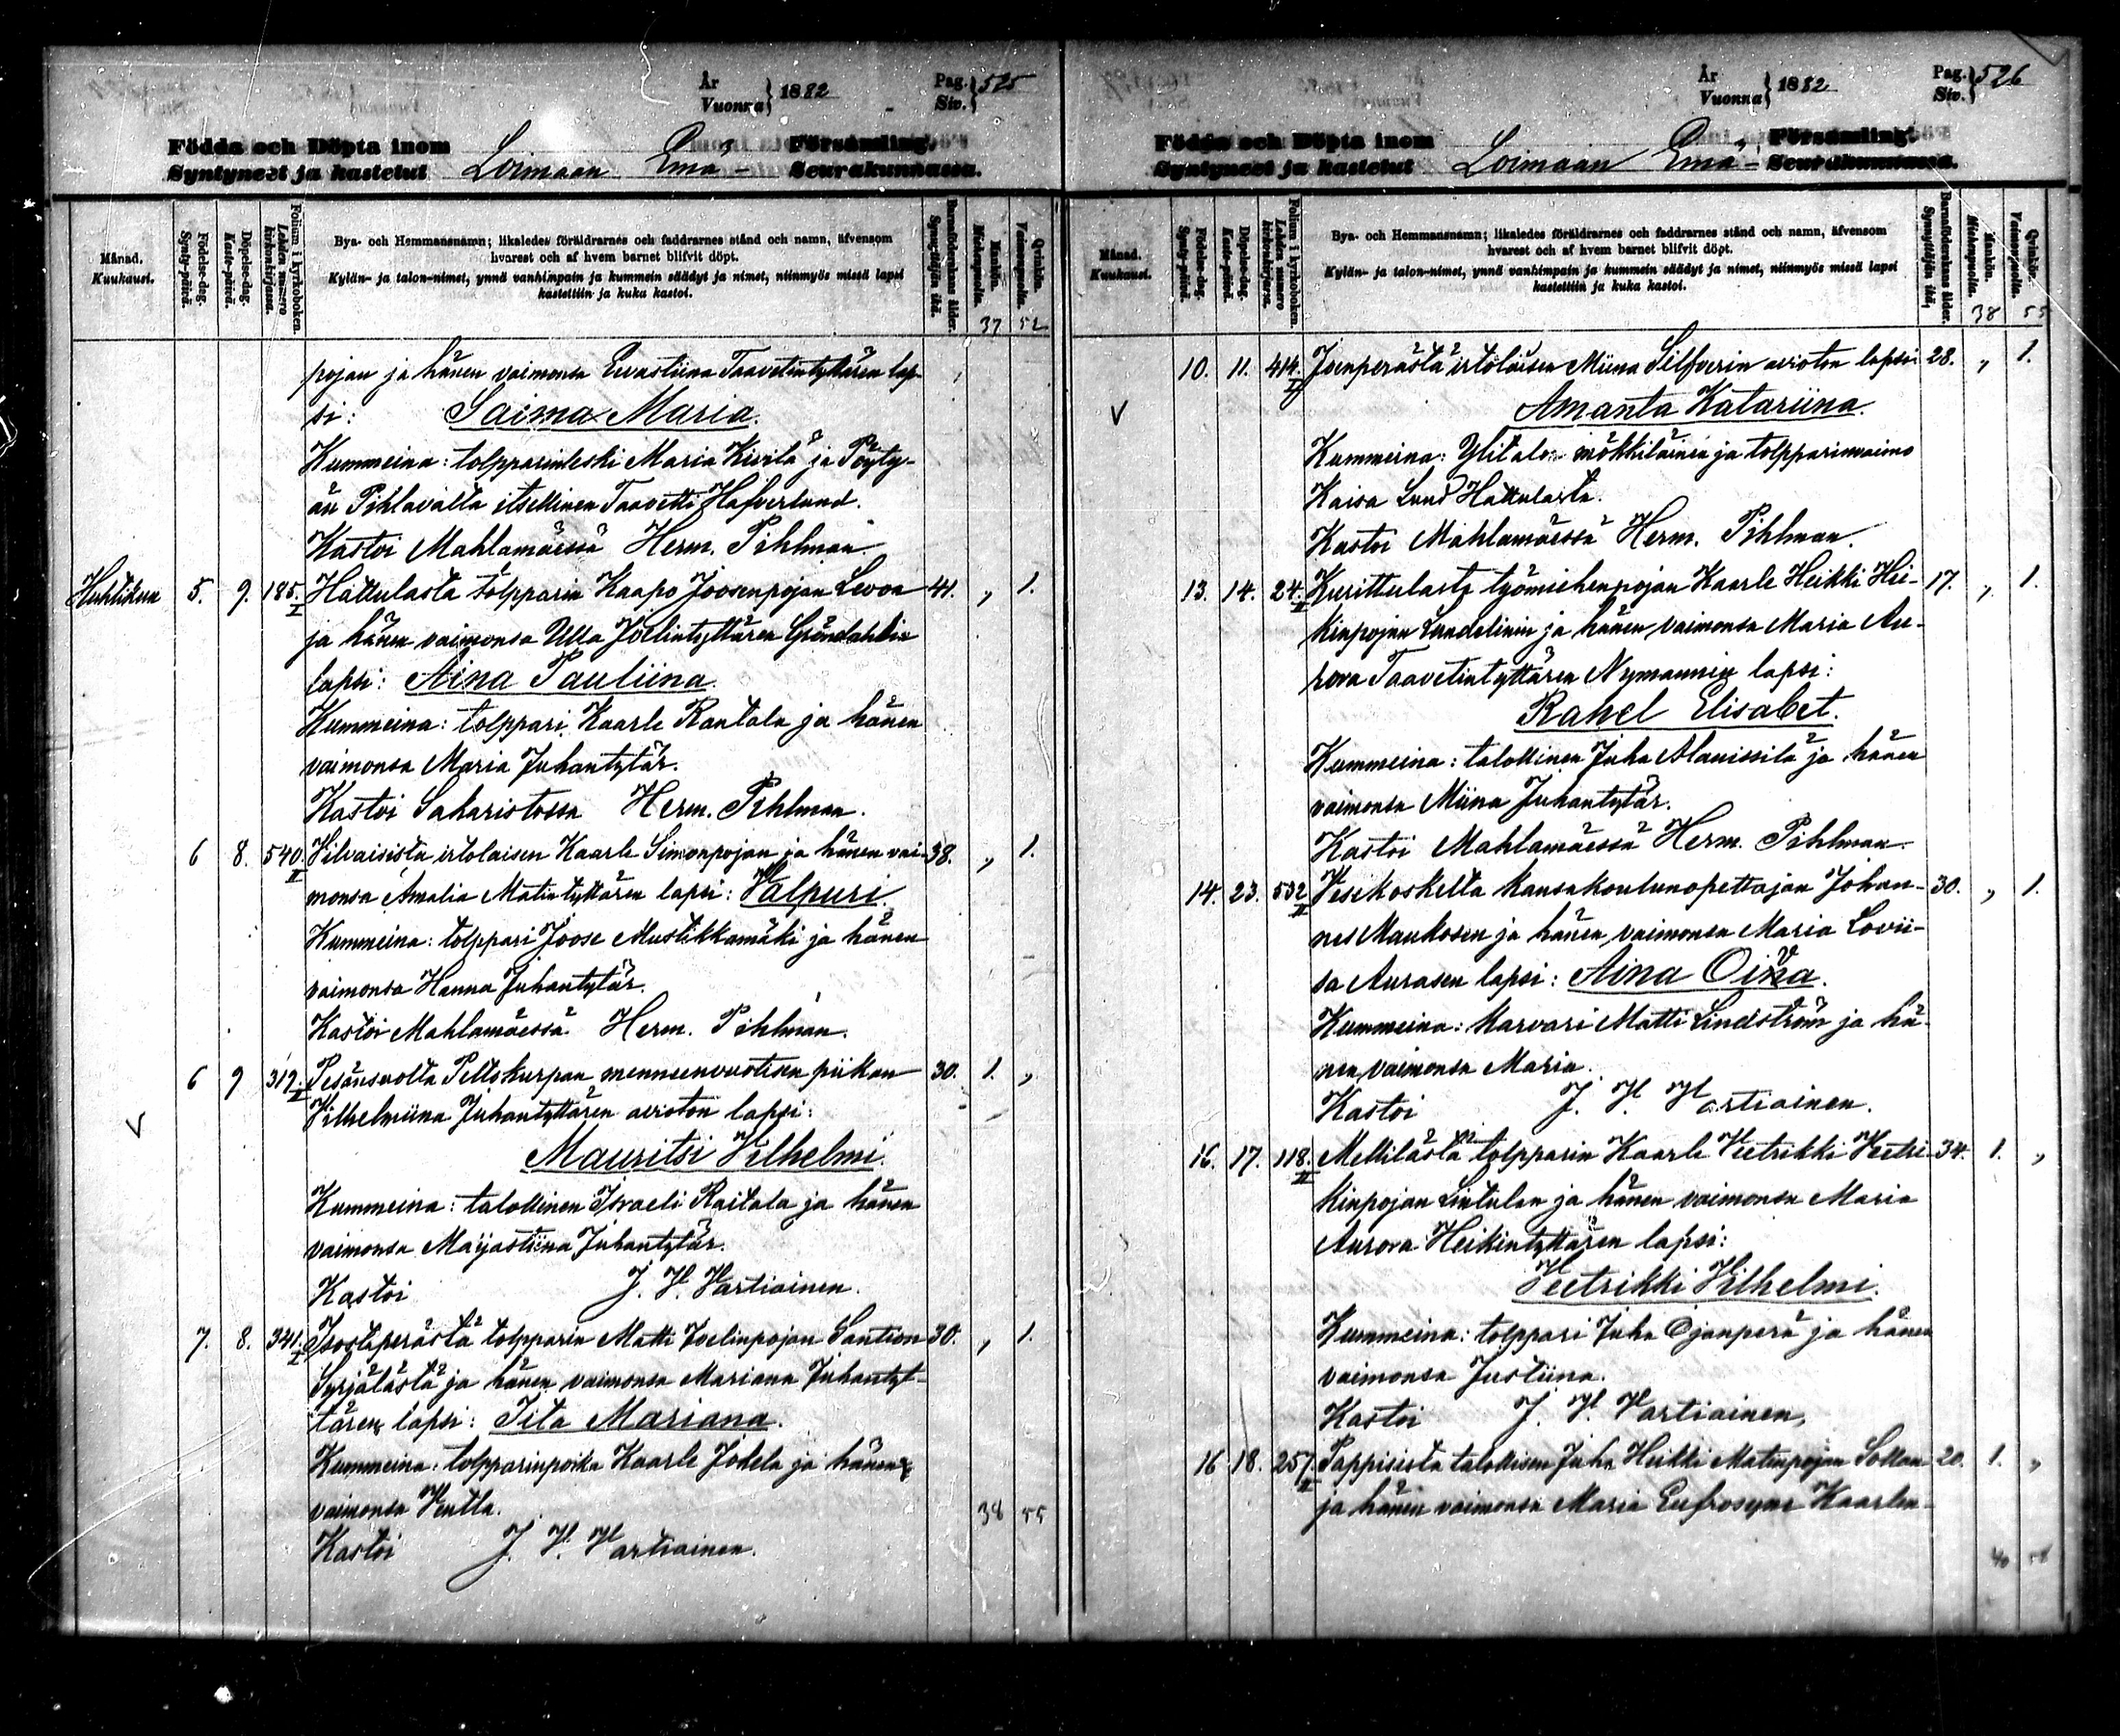 År
Vuonna } 1882
Pag.
Siv. } 525
Födda och Döpta inom
Syntyneet ja kastetut
Loimaan Emä-
Församling.
Seurakunnassa.
Månad.
Kuukausi.
Födelse-dag.
Synty-päivä.
Döpelse-dag.
Kaste-päivä.
Folium i kyrkoboken.
Lehden numero kirkonkirjassa.
Bya- och Hemmansnamn; likaledes föräldrarnes och faddrarnes stånd och namn, äfvensom
hvarest och af hvem barnet blifvit döpt.
Kylän- ja talon-nimet, ynnä vanhimpain ja kummein säädyt ja nimet, niinmyös missä lapsi
kastettiin ja kuka kastoi.
Barnaföderskans ålder.
Synnyttäjän ikä.
Mankön.
Miehenpuolta.
Qvinkön.
Vaimonpuolta.
37 52
pojan ja hänen vaimonsa Eevastiina Taavetintyttären lap-
si: Saima Maria.
Kummeina: tolpparinleski Maria Kivilä ja Pöyty-
än Pihlavalta itsellinen Taavetti Hafverlund.
Kastoi Mahlamäessä Herm. Pihlman
Huhtikuu 5. 9. 185. I Hattulasta tolpparin Kaapo Joosenpojan Levon 41. „ 1.
ja hänen vaimonsa Ulla Joelintyttären Gröndahlin
lapsi: Aina Pauliina.
Kummeina: tolppari Kaarle Rantala ja hänen
vaimonsa Maria Juhantytär.
Kastoi Sahanistossa Herm. Pihlman.
6 8. 540. II Vilvaisista irtolaisen Kaarle Simonpojan ja hänen vai- 38. „ 1.
monsa Amalia Matintyttären lapsi: Valpuri.
Kummeina: tolppari Joose Mustikkamäki ja hänen
vaimonsa Hanna Juhantytär.
Kastoi Mahlamäessä Herm. Pihlman.
6 9 319. II Pesänsuolta Peltokurpan menneenvuotisen piikan 30. 1. „
Vilhelmiina Juhantyttären avioton lapsi:
V
Mauritsi Vilhelmi.
Kummeina: talollinen Israeli Raitala ja hänen
vaimonsa Maijastiina Juhantytär.
Kastoi J. V. Vartiainen.
7. 8. 341. I Isostaperästä tolpparin Matti Joelinpojan Santion 30. „ 1.
Syrjälästä ja hänen vaimonsa Mariana Juhantyt-
tären lapsi: Iita Mariana.
Kummeina: tolpparinpoika Kaarle Jokela ja hänen
vaimonsa Ventla. 38 55
Kastoi J. V. Vartiainen.
År
Vuonna } 1882
Pag.
Siv. } 526
Födda och Döpta inom
Syntyneet ja kastetut
Loimaan Emä-
Församling.
Seurakunnassa.
Månad.
Kuukausi.
Födelse-dag.
Synty-päivä.
Döpelse-dag.
Kaste-päivä.
Folium i kyrkoboken.
Lehden numero kirkonkirjassa.
Bya- och Hemmansnamn; likaledes föräldrarnes och faddrarnes stånd och namn, äfvensom
hvarest och af hvem barnet blifvit döpt.
Kylän- ja talon-nimet, ynnä vanhimpain ja kummein säädyt ja nimet, niinmyös missä lapsi
kastettiin ja kuka kastoi.
Barnaföderskans ålder.
Synnyttäjän ikä.
Mankön.
Miehenpuolta.
Qvinkön.
Vaimonpuolta.
38 55
10. 11. 414. II Joenperästä irtolaisen Miina Silfverin avioton lapsi 28. „ 1.
V
Amanta Katariina.
Kummeina: Ylitalon mökkiläinen ja tolpparinvaimo
Kaisa Lund Hattulasta.
Kastoi Mahlamäessä Herm. Pihlman.
13. 14. 24. II Kurittulasta työmiehenpojan Kaarle Heikki Hei- 17. „ 1.
kinpojan Lundelinin ja hänen vaimonsa Maria Au-
rora Taavetintyttären Nymannin lapsi:
Rahel Elisabet.
Kummeina: talollinen Juha Alanissilä ja hänen
vaimonsa Miina Juhantytär.
Kastoi Mahlamäessä Herm. Pihlman.
14. 23. 532 II Vesikoskelta kansakoulunopettajan Johan- 30. „ 1.
nes Maukosen ja hänen vaimonsa Maria Lovii-
sa Aurasen lapsi: Aina Oiva.
Kummeina: karvari Matti Lindström ja hä-
nen vaimonsa Maria.
Kastoi J. V. Vartiainen.
16. 17. 118. II Mellilästä tolpparin Kaarle Veetrikki Veetri- 34. 1. „
kinpojan Lintulan ja hänen vaimonsa Maria
Aurora Heikintyttären lapsi:
Veetrikki Vilhelmi.
Kummeina: tolppari Juha Ojanperä ja hänen
vaimonsa Justiina.
Kastoi J. V. Vartiainen,
16 18. 257. II Pappisista talollisen Juha Heikki Matinpojan Sollan 20. 1. „
ja hänen vaimonsa Maria Eufrosyne Kaarlen-
40 55